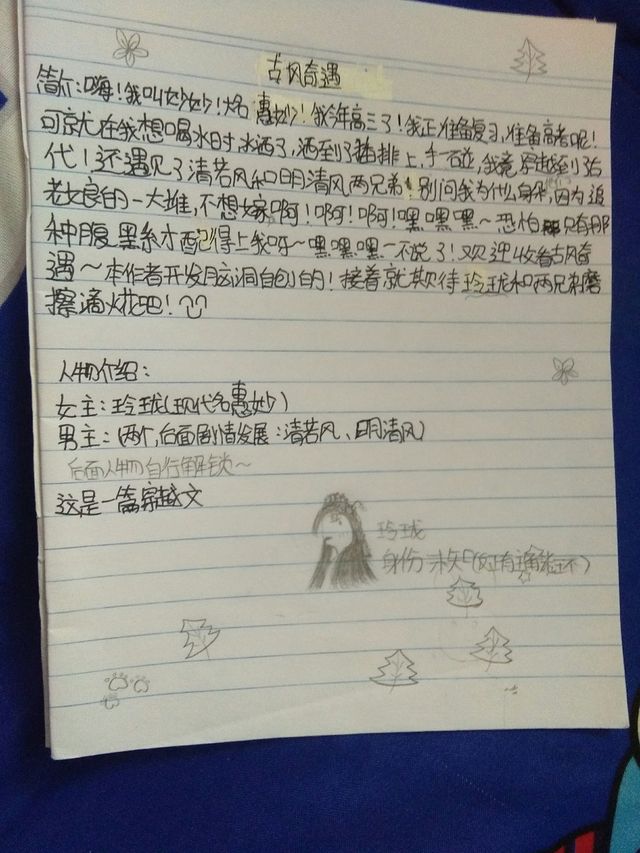 古风奇遇
简介:嗨!我叫妙妙!大名惠妙!我今年高三了!我正准备复习,准备高考呢!
可就在我想喝水时,水洒了,洒到了插排上,手一碰,我竟穿越到了古
代!还遇见了清若风和明清风两兄弟!别问我为什么单身,因为追
老娘的一大堆,不想嫁啊!啊!啊!嘿嘿嘿~恐怕只有那
种腹黑系才配得上我呀~嘿嘿嘿~不说了!欢迎收看古风奇
遇~本作者开发脑洞自创的!接着就期待玲珑和两兄弟磨
擦滴火花吧!
人物介绍:
女主:玲珑(现代名惠妙)
男主:(两个,后面剧情发展:清若风、明清风)
后面人物自行解锁~
这是一篇穿越文
玲珑
身份